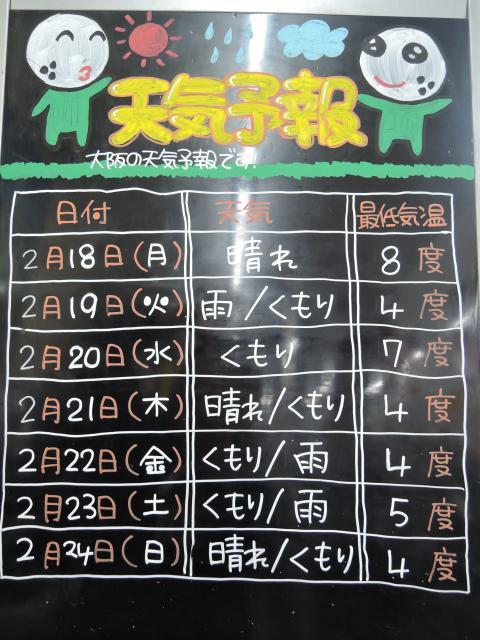 天気予報
大阪の天気予報です!
日付 天気 最低気温
2月18日(月) 晴れ 8度
2月19日(火) 雨/くもり 4度
2月20日(水) くもり 7度
2月21日(木) 晴れ/くもり 4度
2月22日(金) くもり/雨 4度
2月23日(土) くもり/雨 5度
2月24日(日) 晴れ/くもり 4度